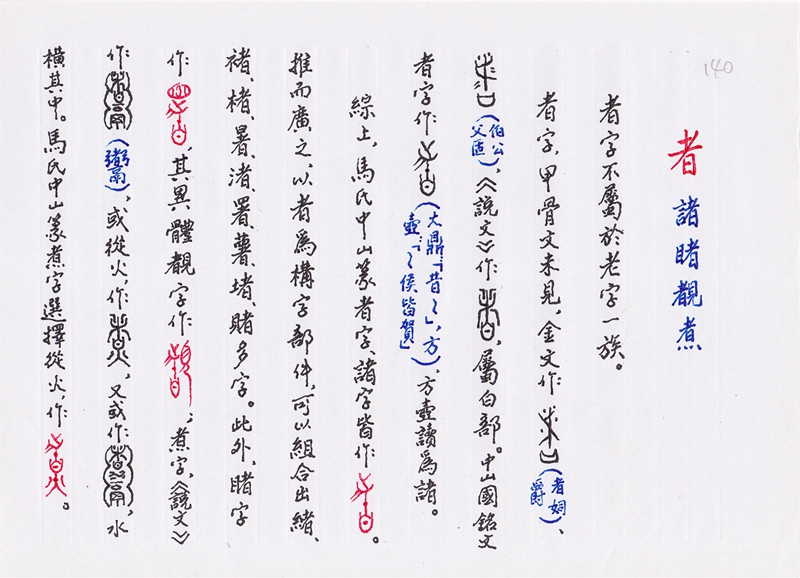 140
者 諸睹覩煮
者字不屬於老字一族。
者字,甲骨文未見,金文作(者姛爵)、
(伯公父𠤳),《說文》作,屬白部。中山國銘文
者字作(大鼎「昔者」,方壺「者侯皆賀」),方壺讀爲諸。
綜上,馬氏中山篆者字、諸字皆作。
推而廣之,以者爲構字部件,可以組合出緒、
褚、楮、暑、渚、署、薯、堵、賭多字。此外,睹字
作,其異體覩字作;煮字,《說文》
作(鬻),或從火,作,又或作,水
橫其中。馬氏中山篆煮字選擇從火,作。